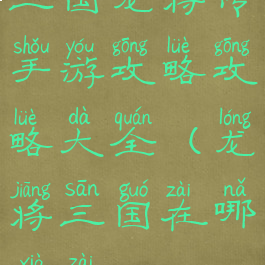 三国龙将传
shǒu yóu gōng lüè gōng
手游攻略攻
lüè dà quán lóng
略大全（龙
jiāng sān guó zài nǎ
将三国在哪
xià zài